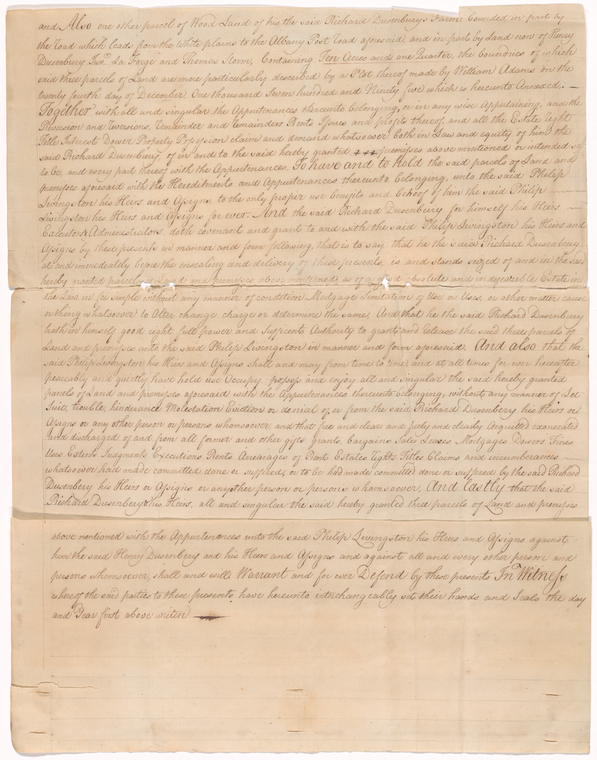 and Also one other parcel of Wood Land of his the said Richard Dusenburys Farm bounded in part by
the Road which leads from the White plains to the Albany Post Road aforesaid and in part by land now of Henry
Dusenbury La Forge and Thomas Storm, Containing Ten Acres and one Quarter, the boundries of which
said three parcels of Land are more particularly described by a Plot thereof made by William Adams on the
twenty fourth day of December One thousand Seven hundred and Ninety five which is hereunto Annexed. —
Together with all and singular the Appurtenances thereunto belonging, or in any wise Appertaining, and the
Reversion and reversions, Remainder and remainders Rents Issues and profits thereof, and all the Estate Right
Title Interest Dower Property Possession claim and demand whatsoever both in Law and equity of him the
said Richard Dusenbury, of in and to the said hereby granted premises above mentioned or intended so
to be, and every part thereof with the Appurtenances. To have and to Hold the said parcels of Land and
premises aforesaid with the Hereditements and Appurtenances thereunto belonging, unto the said Philip
Livingston his Heirs and Assigns to the only proper use benefit and behoof of him the said Philip
Livingston his Heirs and Assigns for ever. And the said Richard Dusenbury for himself his Heirs —
Executors Administrators doth covenant and grant to and with the said Philip Livingston his Heirs and
Assigns by these presents in manner and form following, that is to say that he the said Richard Dusenbury
at and immediately before the ensealing and delivery of these presents is and stands seized of and in the said
hereby granted parcels of Land and premises above mentioned as of a good absolute and indefeasible Estate in
the Law in fee simple without any manner of condition Mortgage Limitation of Use or Uses, or other matter cause
or thing whatsoever to Alter change charge or determine the same. And that he the said Richard Dusenbury
hath in himself good right full power and Sufficient Authority to grant and release the said three parcels of
Land and premises unto the said Philip Livingston in manner and form aforesaid. And also that the
said Philip Livingston his Heirs and Assigns shall and may from time to time and at all times for ever hereafter
peaceably and quietly have hold use Occupy possess and enjoy all and singular the said hereby granted
parcels of Land and premises aforesaid with the Appurtenances thereunto belonging, without any manner of Let
Suit, trouble, hinderance Molestation Eviction or denial of or from the said Richard Dusenbery his Heirs or
Assigns or any other person or persons whomsoever and that free and clear and fully and clearly Acquitted exonerated
and discharged of and from all former and other gifts grants, Bargains Sales Leases Mortgages Dowers Fines
Uses Extents Judgments Executions Rents Arrearages of Rents Estates Rights Titles Claims and incumberances —
whatsoever had made committed done or suffered or to be had made committed done or suffered by the said Richard
Dusenbery his Heirs or Assigns or any other person or persons whomsoever. And lastly that the said
Richard Dusenbery & his Heirs, all and singular the said hereby granted three parcels of Land and premises
above mentioned with the Appurtenances unto the said Philip Livingston his Heirs and Assigns against
him the said Henry Dusenbery and his Heirs and Assigns and against all and every other person and
persons whomsoever, shall and will Warrant and for ever Defend by these presents In Witness
whereof the said parties to these presents, have hereunto interchangeably set their hands and Seals the day
and Year first above written —